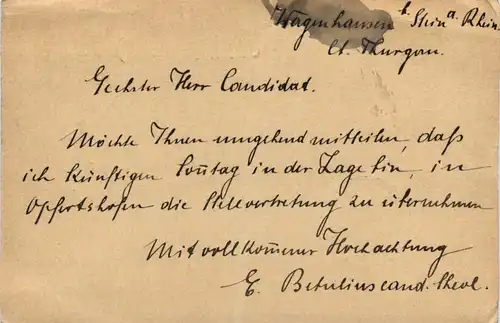 Wagenhausen b. Stein a. Rhein.
Ct. Thurgau.
Geehrter Herr Candidat.
Möchte Ihnen umgehend mitteilen, daß
ich künftigen Sontag in der Lage bin, in
Opfertshofen die Stellvertretung zu übernehmen
Mit vollkommener Hochachtung
E. Betulius cand. theol.